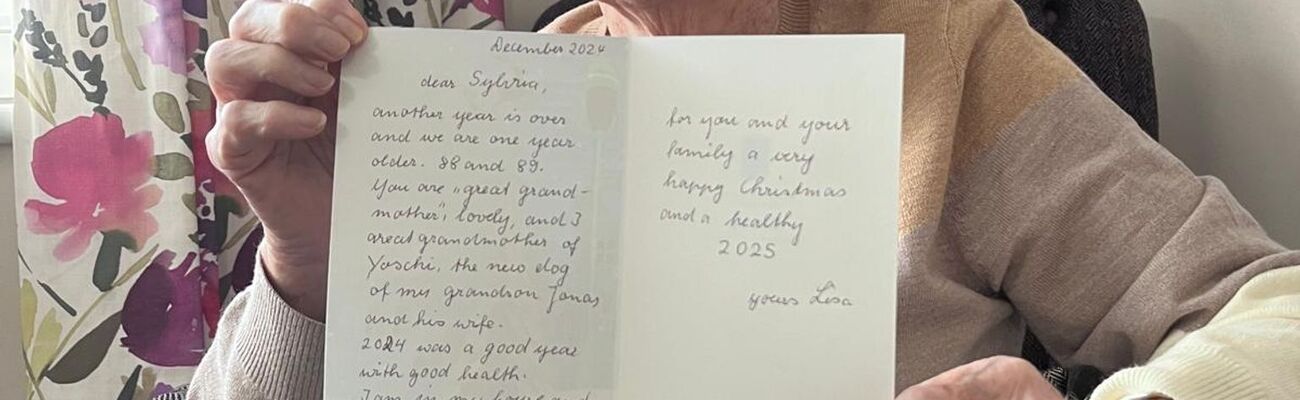 December 2024
dear Sylvia,
another year is over
and we are one year
older. 88 and 89.
You are „great grand-
mother", lovely, and I
great grandmother of
Yoschi, the new dog
of my grandson Jonas
and his wife.
2024 was a good year
with good health.
I am in my house and
for you and your
family a very
happy Christmas
and a healthy
2025
yours Lisa